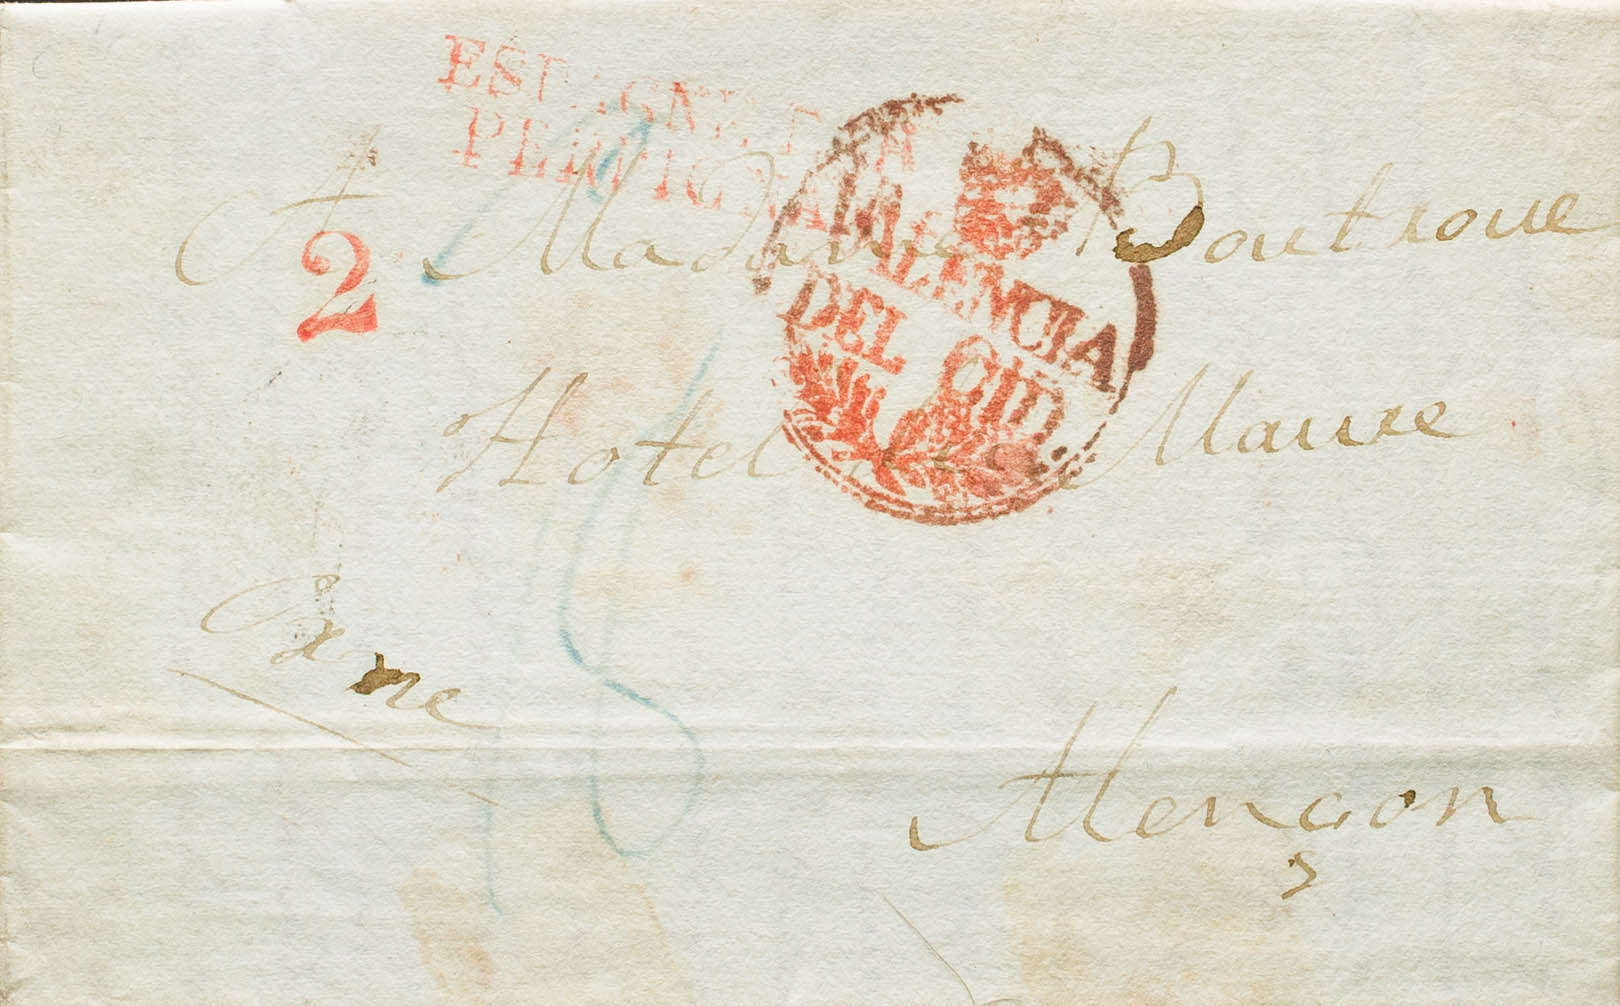 ESPAGNE PAR
PERPIGNAN
A Madame Boutroue
2
VALENCIA
DEL CID.
Hotel du Maure
Orne
Alençon